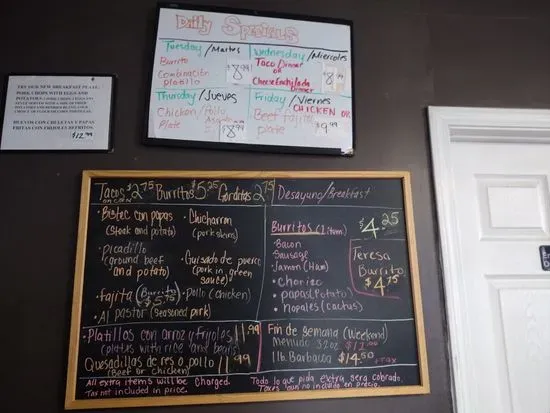 Daily Specials
Tuesday / Martes
Burrito
Combinación
platillo
$8.99
Wednesday / Miercoles
Taco Dinner
or
Cheese Enchilada
Dinner
$8.99
Thursday / Jueves
Chicken / Pollo
Asado
Plate
$8.99
Friday / Viernes
CHICKEN OR
Beef fajita
plate
$9.99
TRY OUR NEW BREAKFAST PLATE
PORK CHOPS WITH EGGS AND
HUEVOS CON CHULETAS Y PAPAS
FRITAS CON FRIJOLES REFRITOS.
$12.99
Tacos $2.75 Burritos $5.25 Gorditas 2.75
on corn
• Bistec con papas
(steak and potato)
• picadillo
(ground beef
and potato)
• fajita (Burrito $5.75)
• Al pastor (seasoned pork)
• Chicharron
(pork skins)
• Guisado de puerco
(pork in green
sauce)
• Pollo (chicken)
• Platillos con arroz y frijoles 11.99
(plates with rice and beans)
Quesadillas de res o pollo 11.99
(Beef or chicken)
All extra items will be charged.
Tax not included in price.
Desayuno/Breakfast
Burritos (1 item)
$4.25
• Bacon
Sausage
• Jamon (Ham)
• Chorizo
• papas (Potato)
• nopales (cactus)
Teresa
Burrito
$4.75
Fin de semana (Weekend)
Menudo 32oz
1 lb. Barbacoa $14.50
+ TAX
Todo lo que pida extra sera cobrado.
Taxes no incluido en precio.